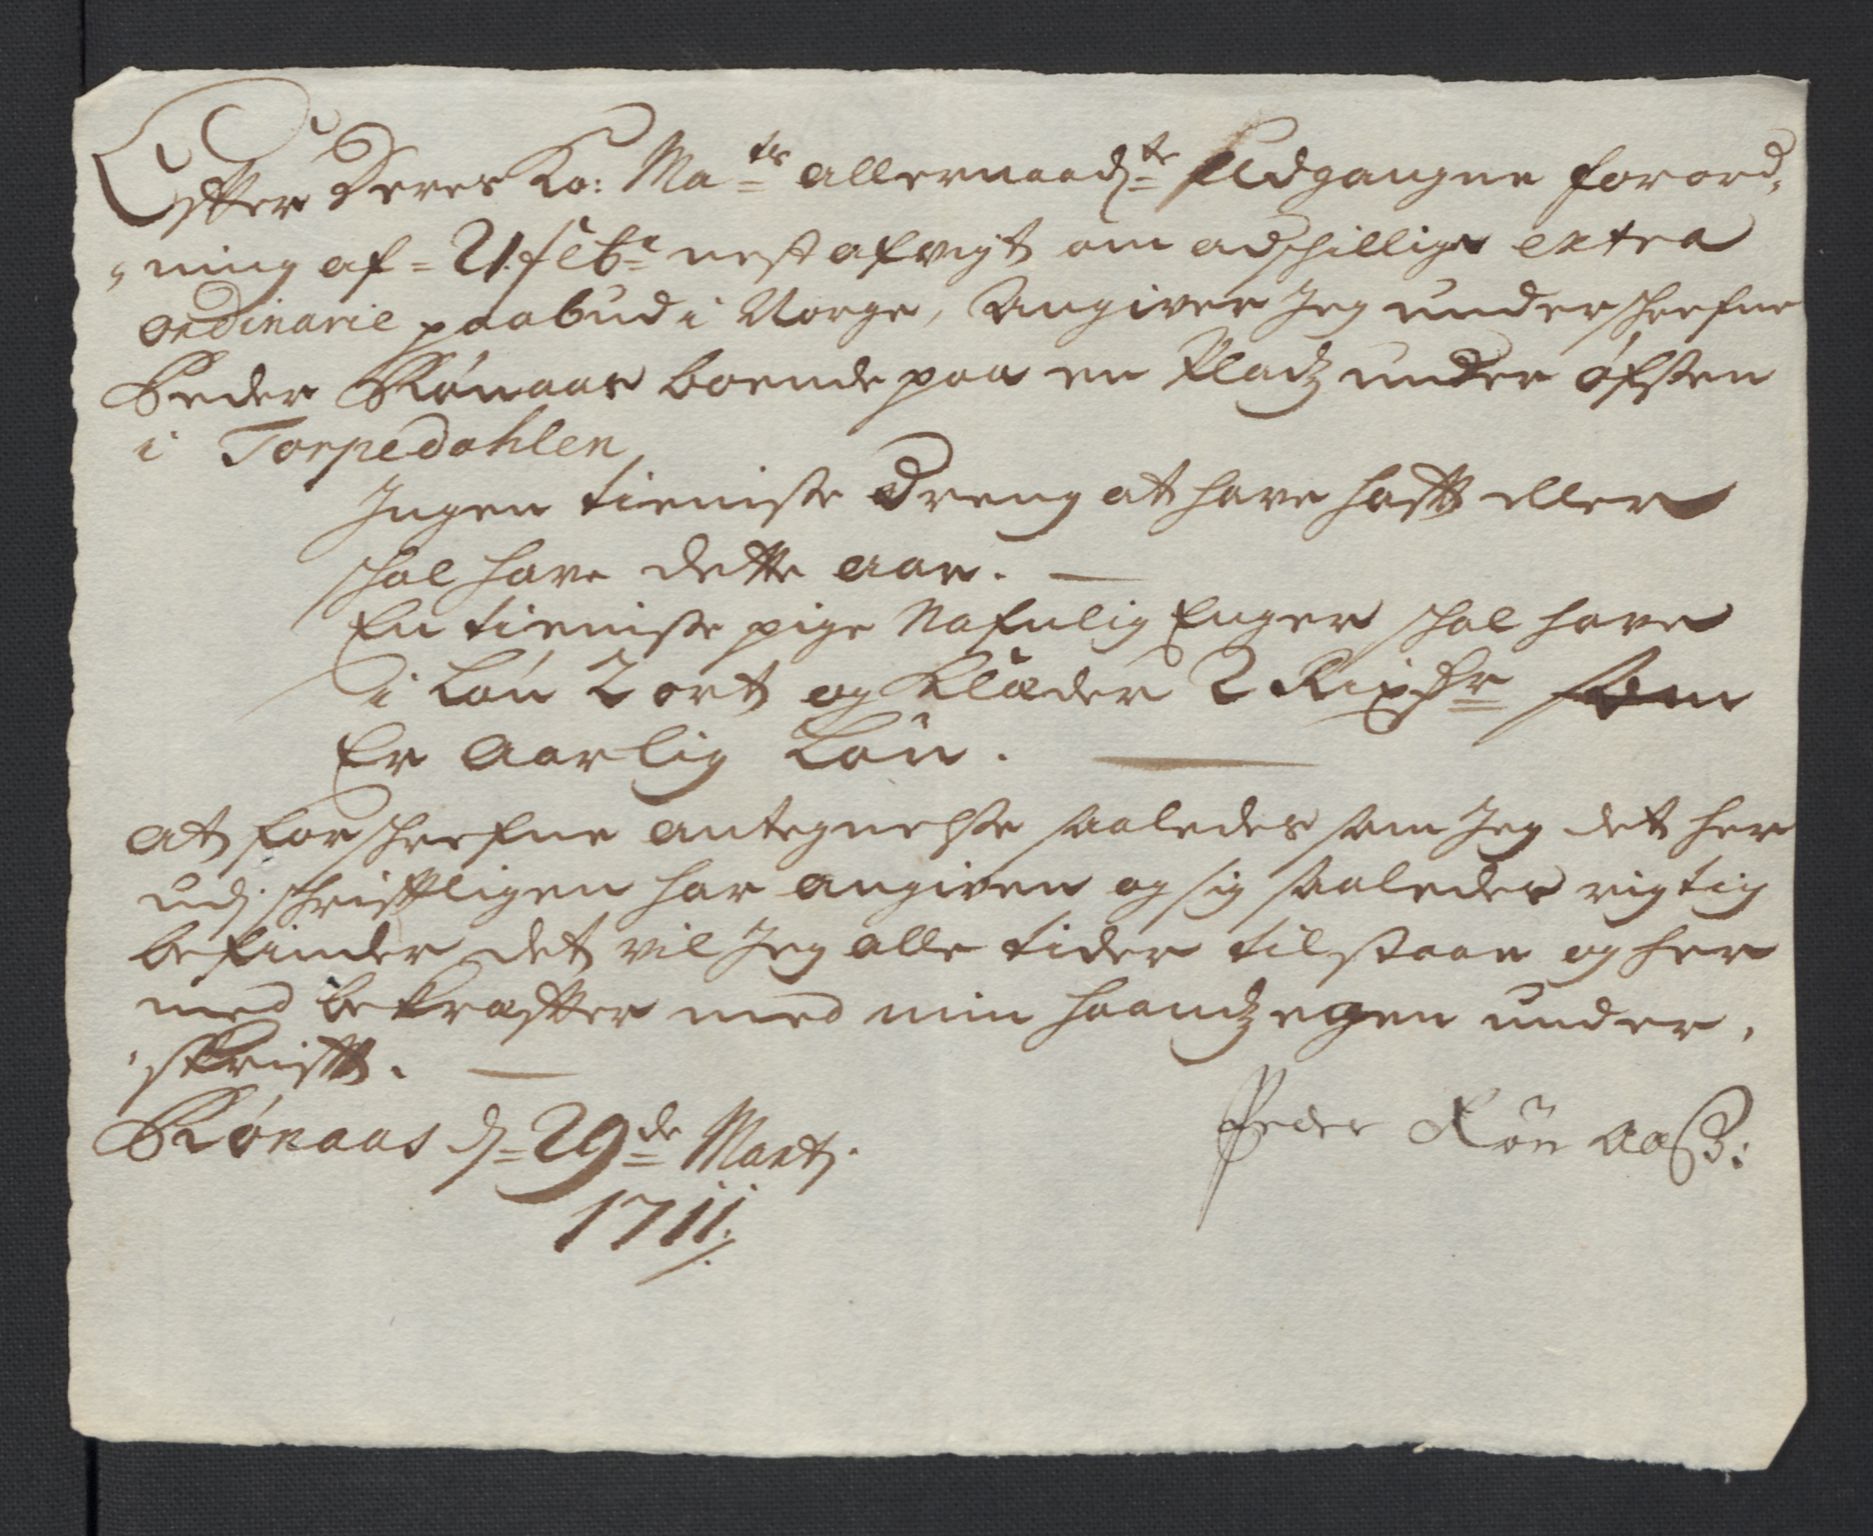 Efter Deres Ko: Ma:ts allernaad:ste Udgangne forord,,
,,ning af = 21. feb:r nest afvigt om adschillige extra
ordinarie paabud i Norge, Angiver Jeg underschrefne
Peder Rønaas boende paa en Pladz under øfsten
i Torpedahlen
Ingen tieniste Dreng at have hafft eller
schal have dette aar. —
En tieniste pige Nafnlig Enger schal have
i Løn 2 ort og Klæder 2 Rixdr som
Er Aarlig Løn. —
At forschrefne antegnelse saaledes som Jeg det her
udj schrifftligen har angiven og sig saaledes rigtig
befinder det vil Jeg alle tider tilstaae og her
med bekræffter med min haandz egen under,
,skrifft. —
Rønaas d = 29de Martj.
1711 ./.
Peder Røn aaß: